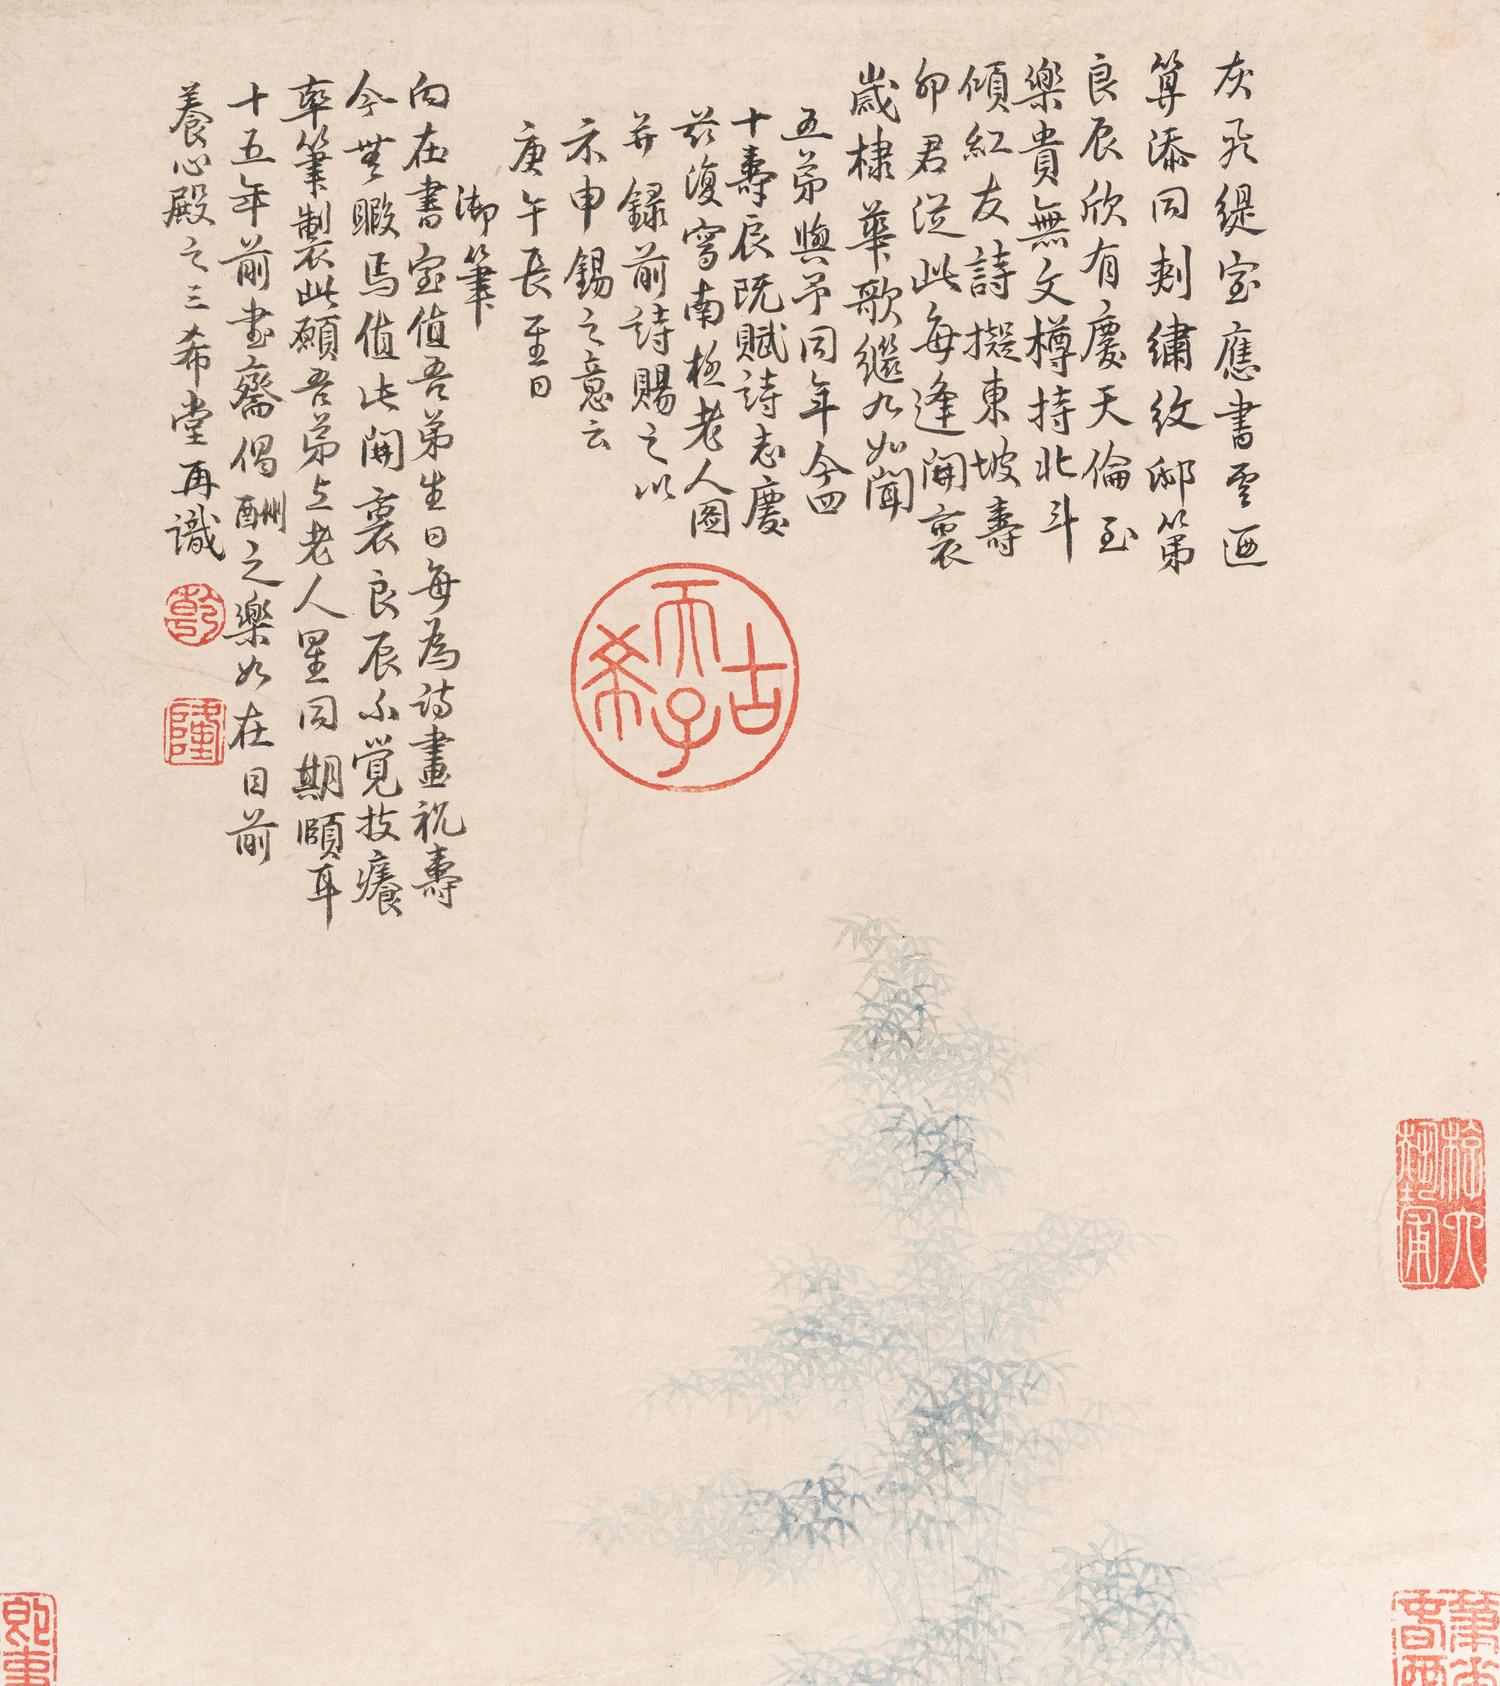 灰飛緹室應書雲迺
算添同刺繡紋邸第
良辰欣有慶天倫至
樂貴無文樽持北斗
傾紅友詩擬東坡壽
卯君從此每逢開裘
歲棣華歌繼九如聞
五弟與予同年今四
十壽辰既賦詩志慶
茲復寫南極老人圖
并錄前詩賜之以
示申錫之意云
庚午長至日
御筆
向在書室值吾弟生日每為詩畫祝壽
今無暇焉值此開裘良辰不覺技癢
率筆製此願吾弟與老人星同期頤耳
十五年前書齋偈酬之樂如在目前
養心殿之三希堂再識
乾
隆
古
希
天
子